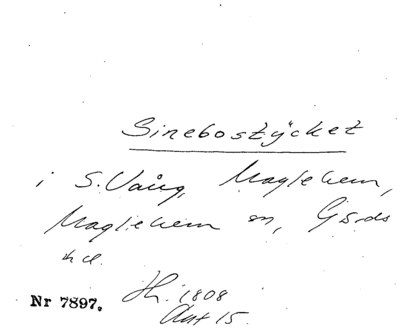 Sinebostÿcket
i S. Vång, Maglehem,
Maglehem sn, Gärds
hd.
Nr 7897. Hh. 1808
Akt 15.